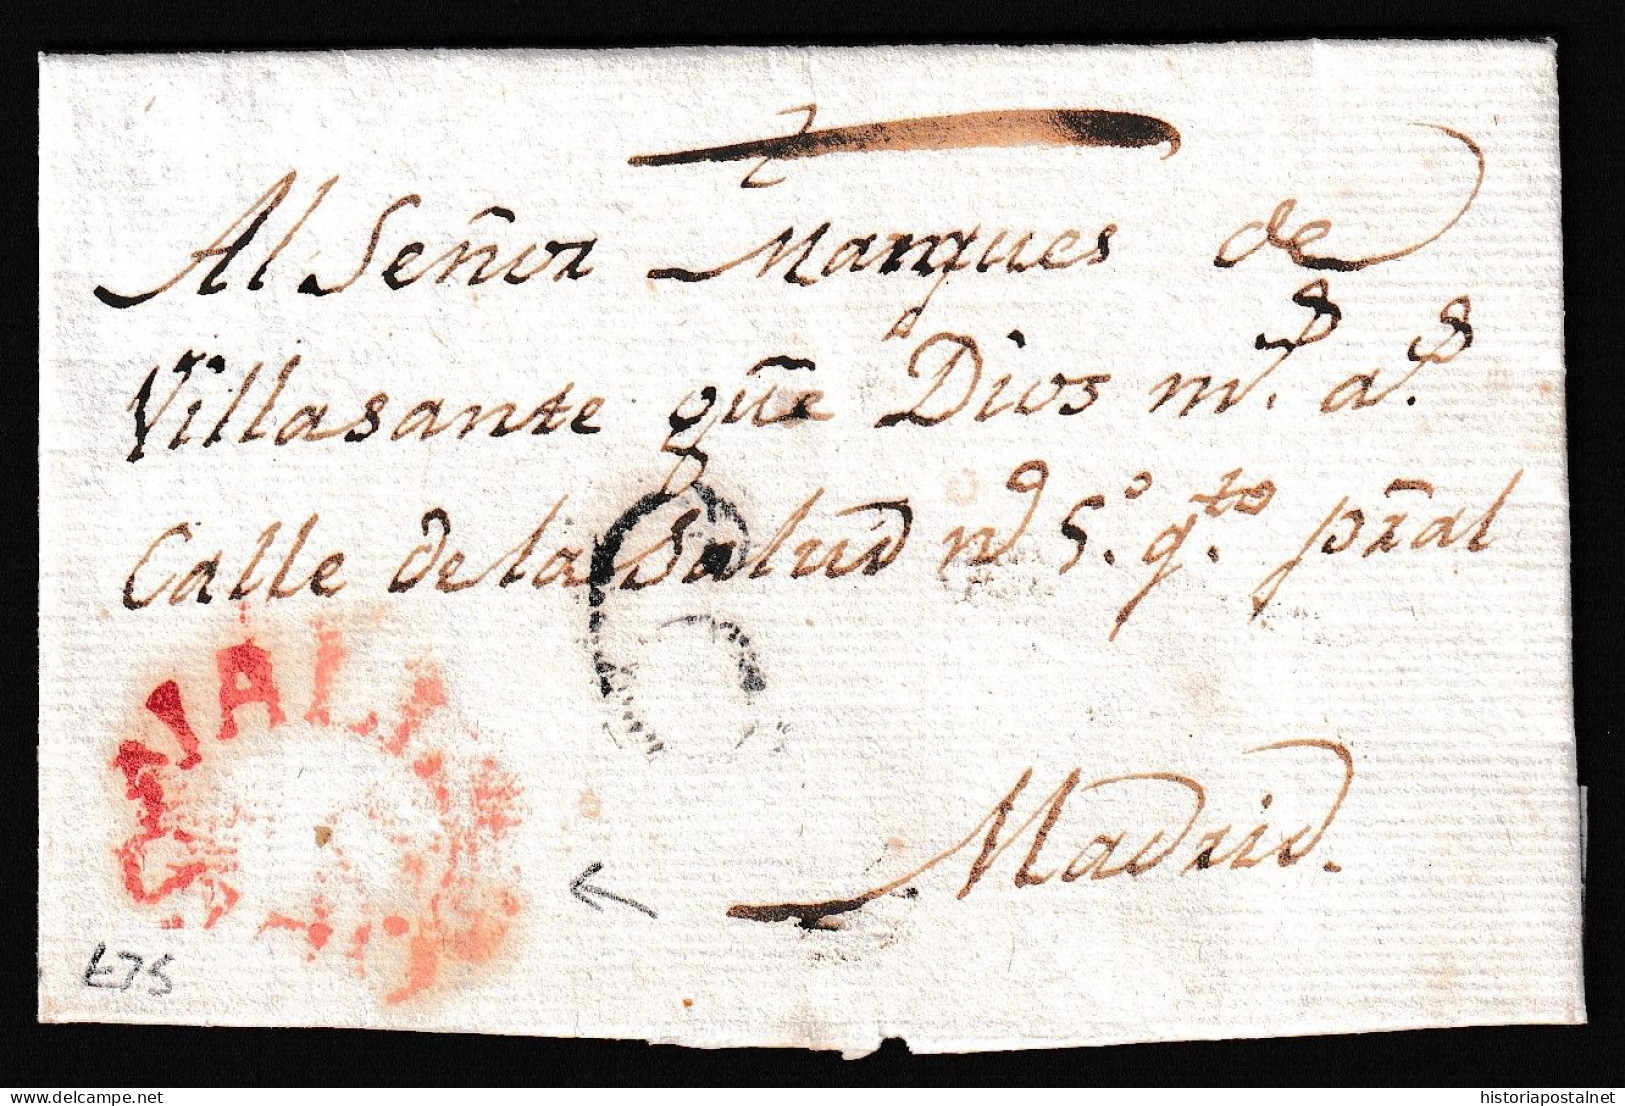 Al Señor Marques de
Villasante que Dios m.s a.s
Calle de la Salud nº 5.º q.to pral
6
Madrid.
£75
historiapostalnet